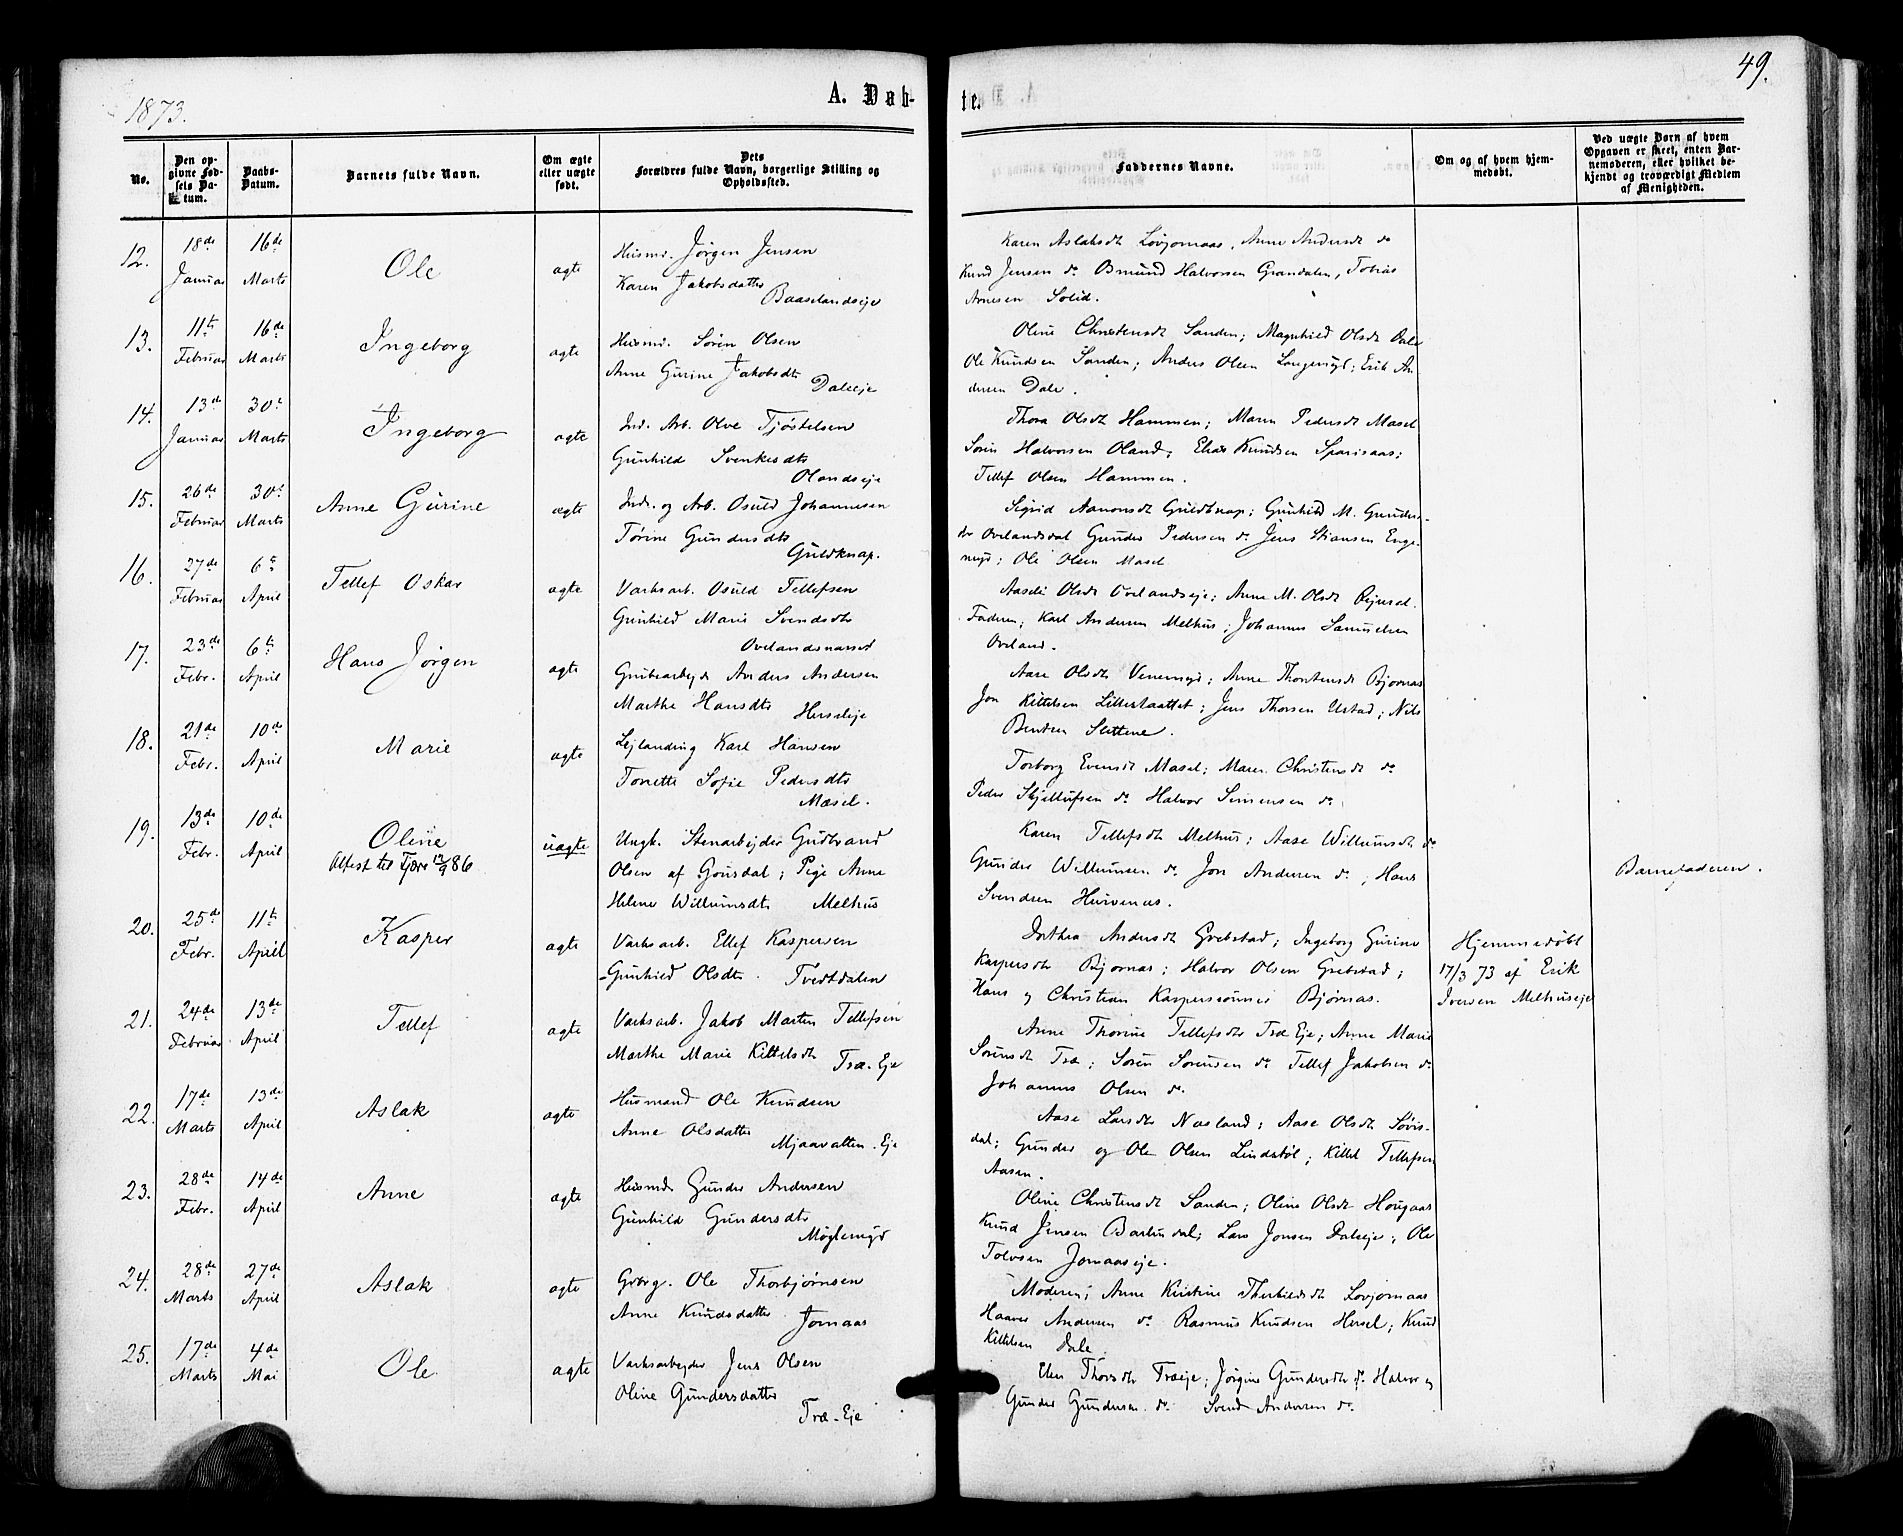 1873.
A. Døb-
te.
49.
No.
Den op-
givne Fød-
sels Da-
tum.
Daabs-
Datum.
Barnets fulde Navn.
Om ægte
eller uægte
født.
Dets
Forældres fulde Navn, borgerlige Stilling og
Opholdssted.
Faddernes Navne.
Om og af hvem hjem-
medøbt.
Ved uægte Børn af hvem
Opgaven er skeet, enten Bar-
nemoderen, eller hvilket be-
kjendt og troværdigt Medlem
af Menigheden.
12. 18de Januar 16de Marts Ole ægte
Husmd. Jørgen Jensen
Karen Jakobsdatter
Baaselandseje
Karen Aslaksdt Løvjomaas, Anne Andersdt do
Knud Jensen do Osmund Halvorsen Grandalen, Tobias
Arnesen Solid.
13. 11te Februar 16de Marts Ingeborg ægte
Husmd. Søren Olsen
Anne Gurine Jakobsdtr
Daleeje
Oline Christensdt Sanden; Magnhild Olsdt Dale
Ole Knudsen Sanden; Anders Olsen Longemyr; Erik An
dersen Dale.
14. 13de Januar 30te Marts Ingeborg ægte
Ind. Arb. Olve Tjøstelsen
Gunhild Svenkesdtr
Olandseje
Thora Olsdt Hammen; Maren Pedersdt Mæsel
Søren Halvorsen Oland; Elias Knudsen
Tellef Olsen Hammen.
15. 26de Februar 30te Marts Anne Gurine ægte
Inds. og Arb. Osuld Johannesen
Tørine Gundersdtr
Guldknap.
Sigrid Aanonsdt Guldknap; Gunhild M. Gunders-
dtr Ovelandsdal Gunder Pedersen do Jens Stiansen Enge-
myr; Ole Olsen Mæsel
16. 27de Februar 6te April Tellef Oskar ægte
Værksarb. Osuld Tellefsen
Gunhild Marie Svendsdtr
Ovelandsnæset
Aaseli Olsdt Ovelandseje; Anne M. Olsdt
Faderen; Karl Andersen Melhus; Johannes Samuelsen
Oveland.
17. 23de Febr. 6te April Hans Jørgen ægte
Grubearbejder Anders Andersen
Marthe Hansdtr
Herseleje
Aase Olsdt Venemyr; Anne Thorstensdt Bjørnaas
Jon Kittelsen Lillestaattet; Jens Thorsen Ustad; Nils
Bentsen Slettene.
18. 21de Febr. 10de April Marie ægte
Lejlænding Karl Hansen
Tonette Sofie Pedersdtr
Mæsel.
Torborg Evensdt Mæsel; Maren Christensdt do
Peder Skjellufsen do Halvor Simensen do
19. 13de Febr. 10de April Oline uægte
Attest til Fjære 12/9 86
Ungk. Stenarbejder Gudbrand
Olsen af Gousdal; Pige Anne
Helene Willumsdtr Melhus
Karen Tellefsdt Melhus; Aase Willumsdt do
Gunder Willumsen do Jon Andersen do; Hans
Svendsen
Barnefaderen.
20. 25de Febr. 11te April Kasper ægte
Værksarb. Ellef Kaspersen
Gunhild Olsdtr. Tvedtdalen
Dorthea Andersdt Grebstad; Ingeborg Gurine
Kaspersdtr Bjørnaas; Halvor Olsen Grebstad;
Hans og Christian Kasperssønner Bjørnaas.
Hjemmedøbt
17/3 73 af Erik
Iversen Melhuseje
21. 24de Februar 13de April Tellef ægte
Værksarb. Jakob Martin Tellefsen
Marthe Marie Kittelsdt
Træ-Eje
Anne Thorine Tellefsdtr Træ Eje; Anne Marie
Sørensdt Træ; Søren Sørensen do Tellef Jakobsen do
Johannes Olsen do.
22. 17de Marts 13de April Aslak ægte
Husmand Ole Knudsen
Anne Olsdatter
Mjaavatten-Eje
Aase Larsdtr Næsland; Aase Olsdt Løvis-
dal; Gunder og Ole Olsen Lindstøl; Kittel Tellefsen
Aasen.
23. 28de Febr. 14de April Anne ægte
Husmd. Gunder Andersen
Gunhild Gundersdtr
Møglemyr
Oline Christensdt Sanden; Oline Olsdt Hougaas
Knud Jensen Barlindal; Lars Jensen Daleeje; Ole
Tolvsen Jomaaseje.
24. 28de Marts 27de April Aslak ægte
Grbrg. Ole Thorbjørnsen
Anne Knudsdatter
Jomaas
Moderen; Anne Kristine Therkildsdt Løvjomaas
Haaver Andersen do Rasmus Knudsen Hersel; Knud
Kittelsen Dale.
25. 17de Marts 4de Mai Ole ægte
Værksarbejder Jens Olsen
Oline Gundersdatter
Træ-Eje
Elen Thorsdtr Træeje; Jørgine Gundersdtr do Halvor og
Gunder Gundersen do Svend Andersen do